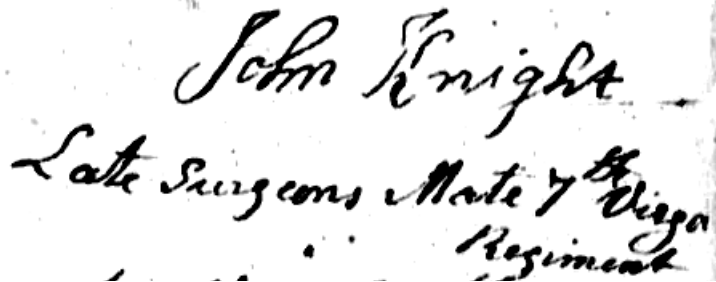 John Knight
Late Surgeons Mate 7th Virga
Regiment